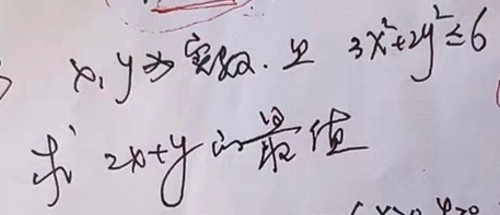 x,y为实数.且 3x²+2y²≤6
求 2x+y的最值